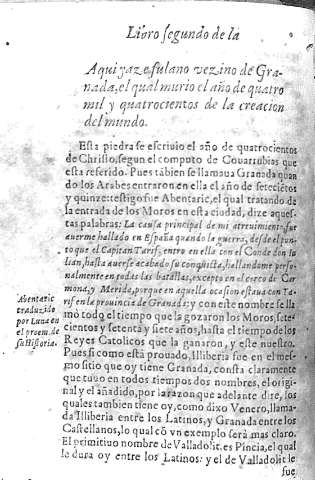 Libro segundo de la
Aqui yaze fulano vezino de Gra-
nada, el qual murio el año de quatro
mil y quatrocientos de la creacion
del mundo.
Esta piedra se escriuio el año de quatrocientos
de Christo, segun el computo de Couarrubias que
esta referido. Pues tãbien se llamaua Granada quan
do los Arabes entraron en ella el año de setecietos
y quinze: testigo fue Abentaric, el qual tratando de
la entrada de los Moros en esta ciudad, dize aques-
tas palabras: La causa principal de mi atreuimiento, fue
auerme hallado en España quando la guerra, desde el pun
to que el Capitan Tarif, entro en ella con el Conde don Iu
lian, hasta auerse acabado su conquista, hallandome perso-
nalmente en todas las batallas, excepto en el cerco de Car
mona, y Merida, porque en aquella ocasion estaua con Ta-
rif en la prouincia de Granada: y con este nombre se lla
mò todo el tiempo que la gozaron los Moros, sete-
cientos y setenta y siete años, hasta el tiempo de los
Reyes Catolicos que la ganaron, y este nuestro.
Pues si como està prouado, Illiberia fue en el mes-
mo sitio que oy tiene Granada, consta claramente
que tuuo en todos tiempos dos nombres, el origi-
nal y el añadido, por la razon que adelante dire, los
quales tambien tiene oy, como dixo Venero, llama-
da Illiberia entre los Latinos, y Granada entre los
Castellanos, lo qual cõ vn exemplo serà mas claro.
El primitiuo nombre de Valladolit, es Pincia, el qual
le dura oy entre los Latinos: y el de Valladolit le
fue
Abentaric
traduzido
por Luna en
el proem. de
su Historia.